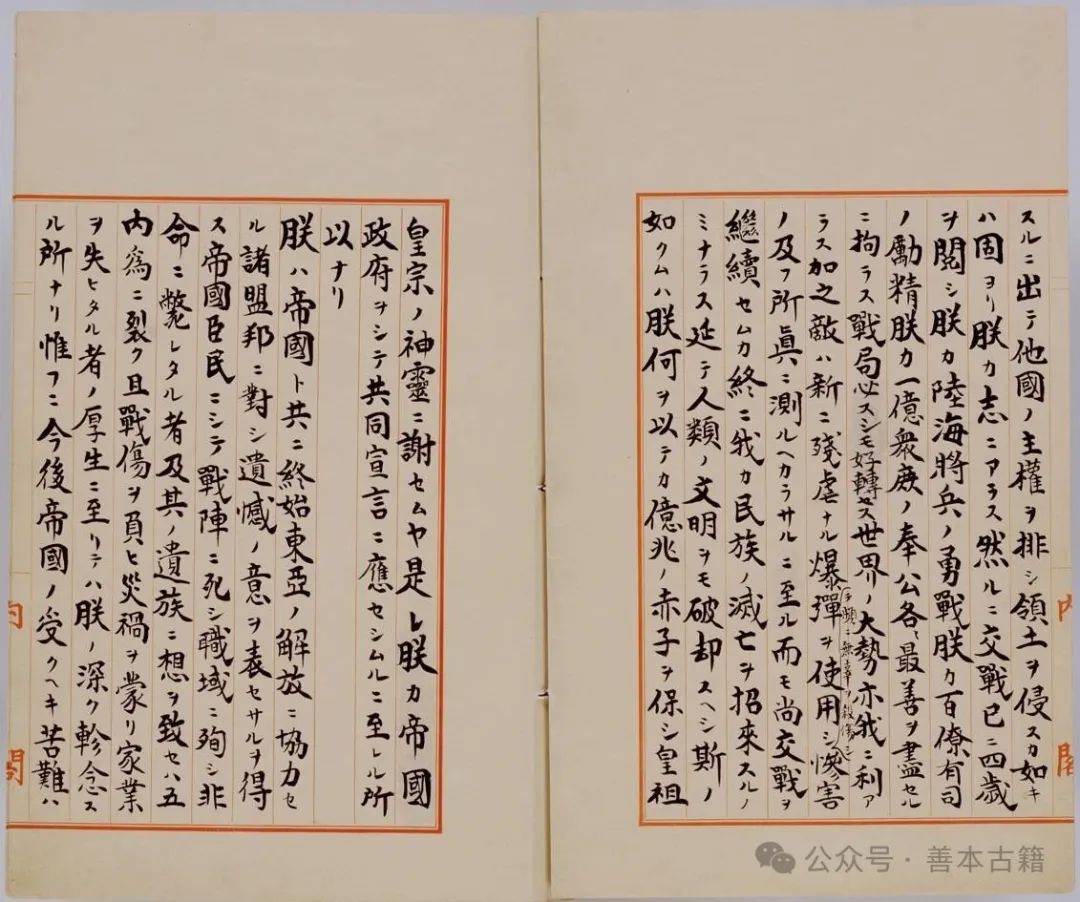 スルニ出テ他國ノ主權ヲ排シ領土ヲ侵スカ如キ
ハ固ヨリ朕カ志ニアラス然ルニ交戰已ニ四歲
ヲ閲シ朕カ陸海將兵ノ勇戰朕カ百僚有司
ノ勵精朕カ一億衆庶ノ奉公各〻最善ヲ盡セル
ニ拘ラス戰局必スシモ好轉セス世界ノ大勢亦我ニ利ア
ラス加之敵ハ新ニ殘虐ナル爆彈ヲ使用シ慘害
テ頻ニ無辜ヲ殺傷シ
ノ及フ所眞ニ測ルヘカラサルニ至ル而モ尚交戰ヲ
繼續セムカ終ニ我カ民族ノ滅亡ヲ招來スルノ
ミナラス延テ人類ノ文明ヲモ破却スヘシ斯ノ
如クムハ朕何ヲ以テカ億兆ノ赤子ヲ保シ皇祖
內閣
皇宗ノ神靈ニ謝セムヤ是レ朕カ帝國
政府ヲシテ共同宣言ニ應セシムルニ至レル所
以ナリ
朕ハ帝國ト共ニ終始東亞ノ解放ニ協力セ
ル諸盟邦ニ對シ遺憾ノ意ヲ表セサルヲ得
ス帝國臣民ニシテ戰陣ニ死シ職域ニ殉シ非
命ニ斃レタル者及其ノ遺族ニ想ヲ致セハ五
內爲ニ裂ク且戰傷ヲ負ヒ災禍ヲ蒙リ家業
ヲ失ヒタル者ノ厚生ニ至リテハ朕ノ深ク軫念ス
ル所ナリ惟フニ今後帝國ノ受クヘキ苦難ハ
內閣
公众号·善本古籍